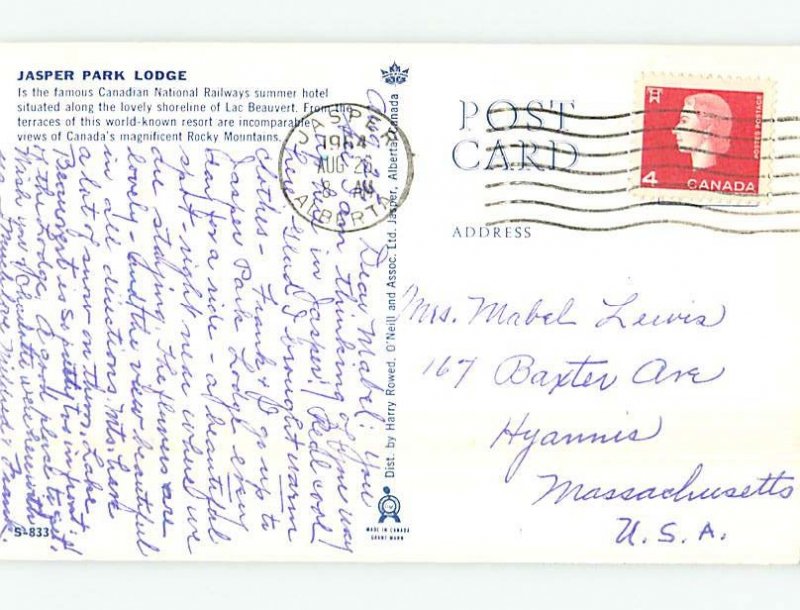 JASPER PARK LODGE
Is the famous Canadian National Railways summer hotel
situated along the lovely shoreline of Lac Beauvert. From the
terraces of this world-known resort are incomparable
views of Canada's magnificent Rocky Mountains.
Aug.
Dear Mabel: You
are again thinking of you way
here in Jasper! Real cool
here - Glad I brought warm
clothes - Frank & I go up to
Jasper Park Lodge every
for a ride - a beautiful
spot - right near where we
are staying. The flowers are
lovely - And the view beautiful
in all directions. Mts. have
a lot of snow on them. Lake
Beauvert is so pretty in front
of the Lodge. A good place to sit.
Wish you & Charlotte were here with
us. Much love Mildred & Frank.
S-833
Dist. by Harry Rowed. O'Neill and Assoc. Ltd. Jasper, Alberta, Canada
MADE IN CANADA
GRANT MANN
JASPER
1964
AUG 26
8 AM
ALBERTA
POST
CARD
ADDRESS
4 CANADA
POSTES POSTAGE
Mrs. Mabel Lewis
167 Baxter Ave
Hyannis
Massachusetts
U.S.A.